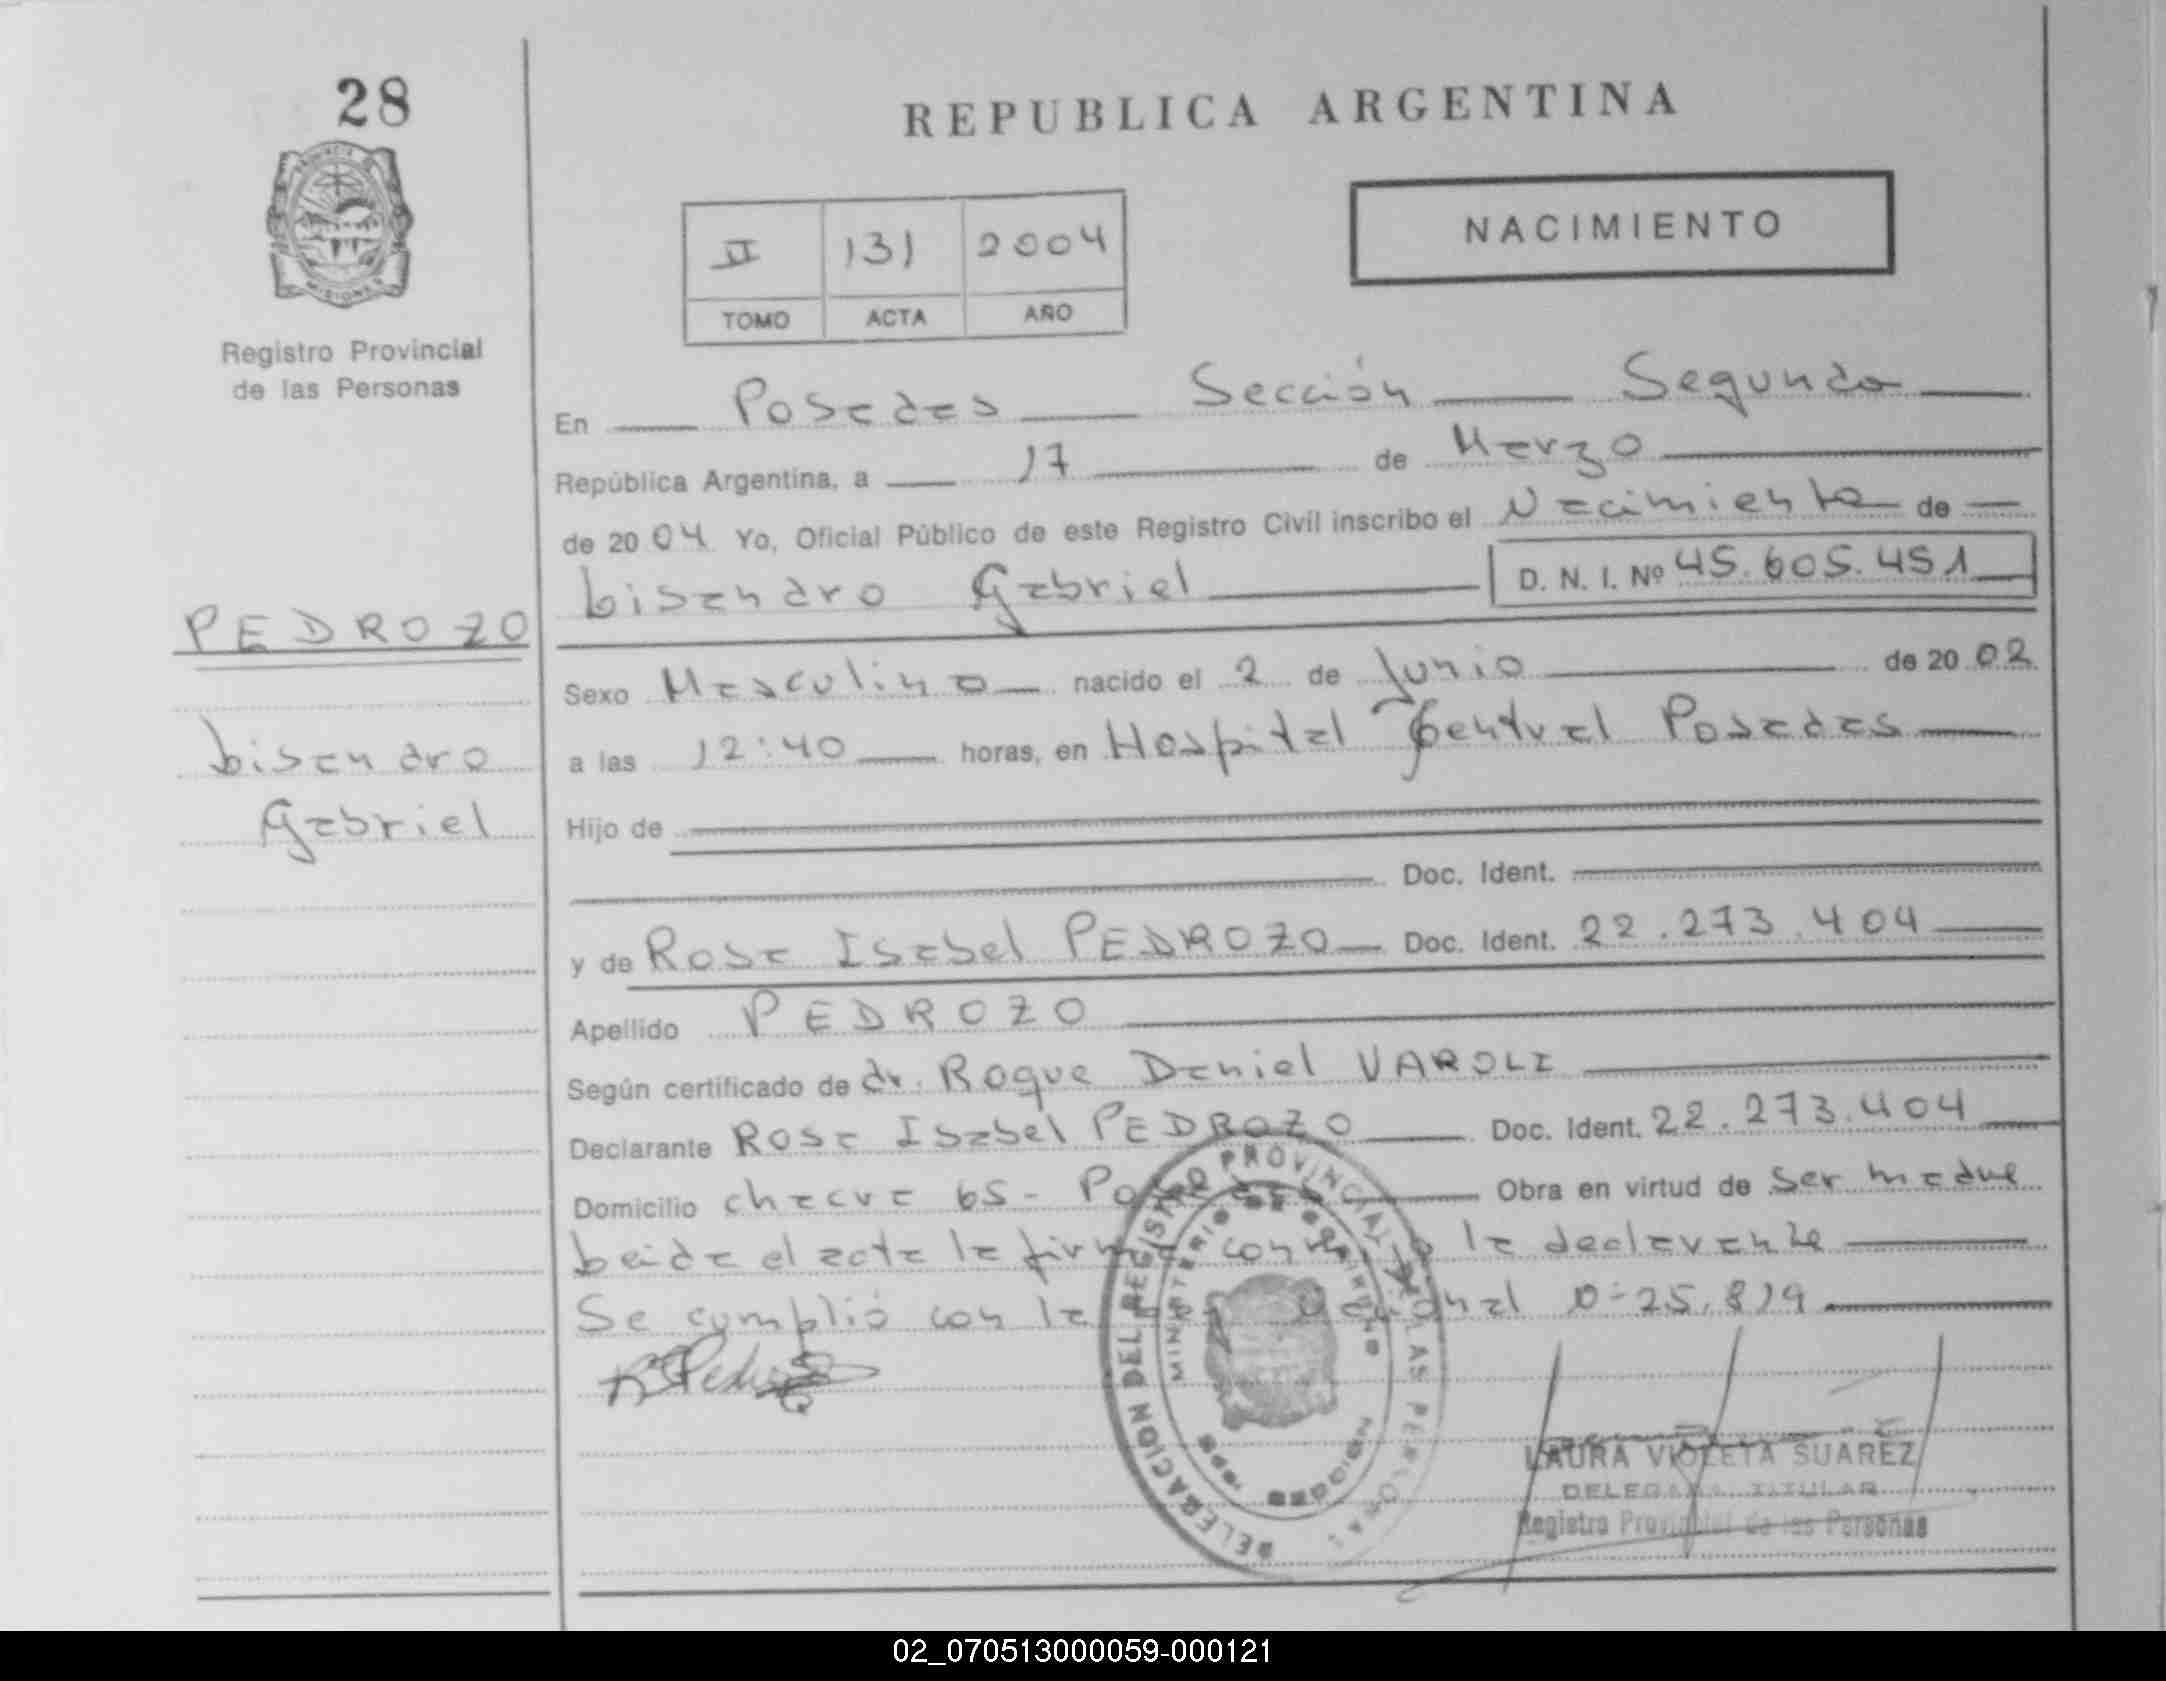 28
REPUBLICA ARGENTINA
PROVINCIA DE
MISIONES
Registro Provincial
de las Personas
II 131 2004
TOMO ACTA AÑO
NACIMIENTO
En Posadas Sección Segunda
República Argentina, a 17 de Marzo
de 2004 Yo, Oficial Público de este Registro Civil inscribo el Nacimiento de
Lisandro Gabriel D. N. I. Nº 45.605.451
PEDROZO
Lisandro
Gabriel
Sexo Masculino nacido el 2 de Junio de 2002
a las 12:40 horas, en Hospital Central Posadas
Hijo de
Doc. Ident.
y de Rosa Isabel PEDROZO Doc. Ident. 22.273.404
Apellido PEDROZO
Según certificado de dr. Roque Daniel VAROLI
Declarante Rosa Isabel PEDROZO Doc. Ident. 22.273.404
Domicilio chacra 65 - Posadas Obra en virtud de ser madre
Leida el acta la firma conmigo la declarante
Se cumplió con la Ley Nacional Nº 25.819
DELEGACION DEL REGISTRO PROVINCIAL DE LAS PERSONAS
MINISTERIO DE GOBIERNO
LAURA VIOLETA SUAREZ
DELEGADA TITULAR
Registro Provincial de las Personas
02_070513000059-000121